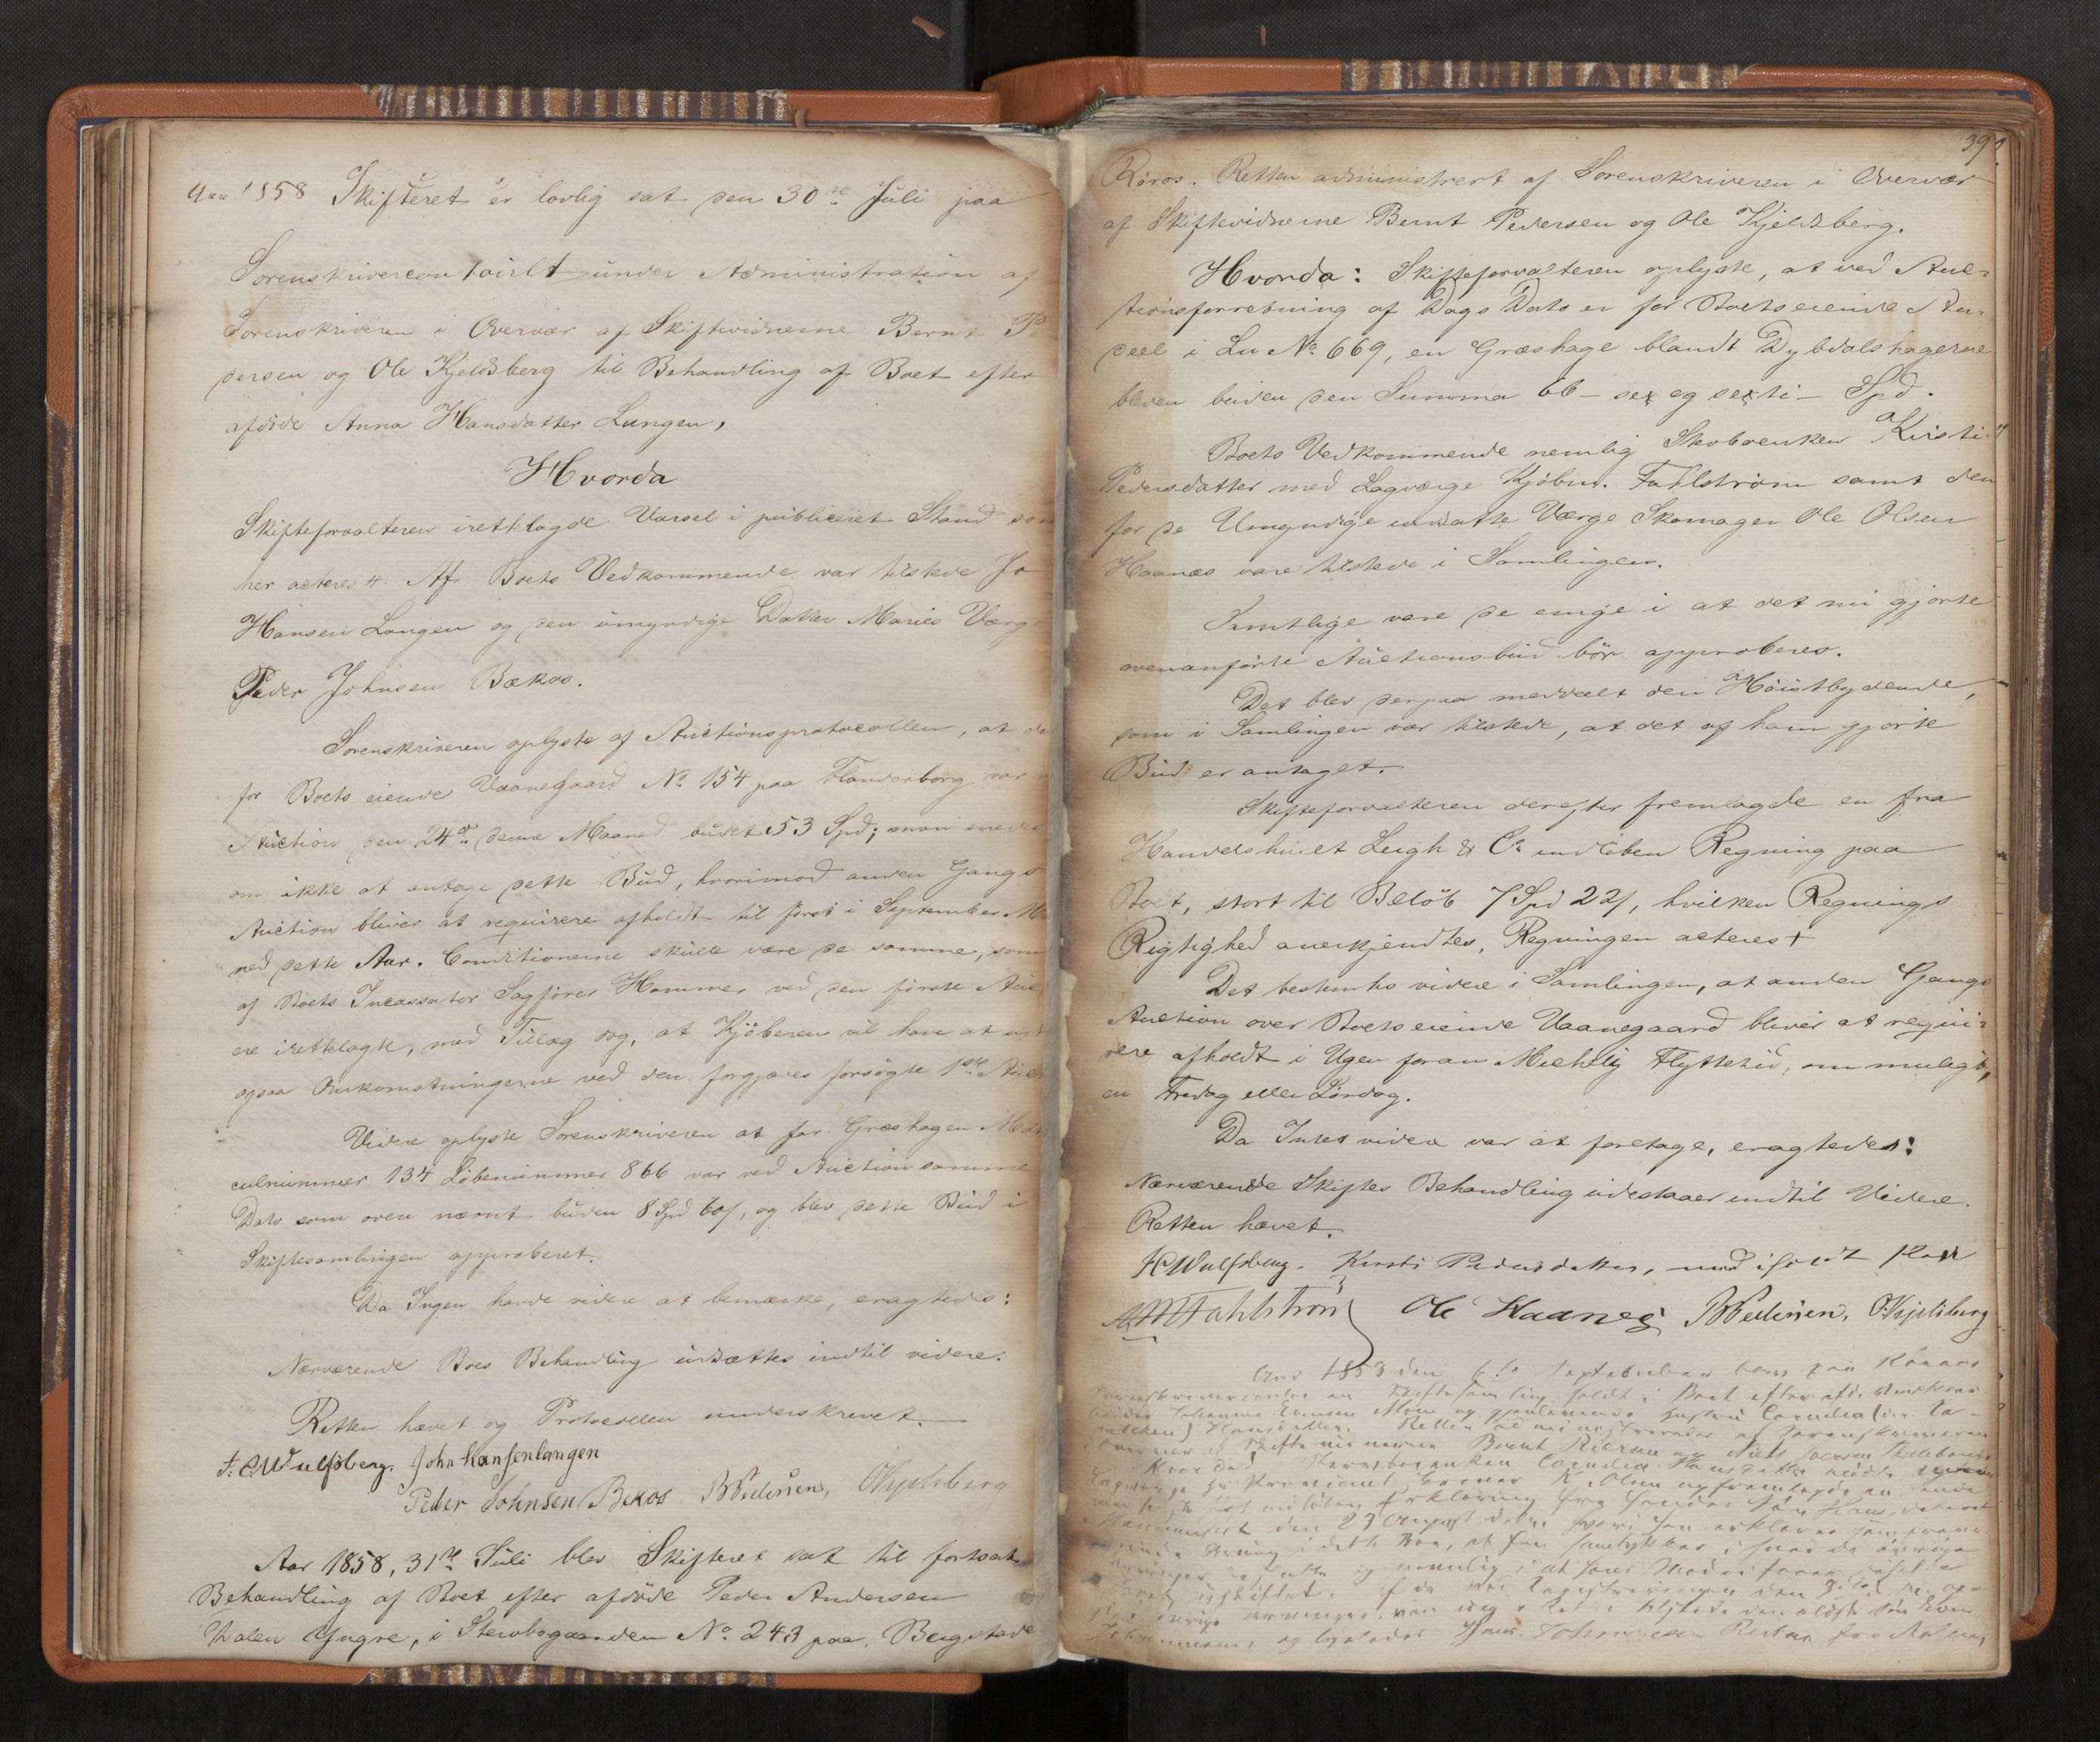 Aar 1858 Skifteret er lovlig sat den 30te Juli paa
Sorenskrivercontoiret under Administration af
Sorenskriveren i Overvær af Skiftevidnerne Bernt Pe
dersen og Ole Kjeldsberg til Behandling af Boet efter
afdöde Anna Hansdatter Langen,
Hvorda
Skifteforvalteren irettelagde Varsel i publiceret Stand som
her acteres #. Af Boets Vedkommende var tilstede Jo
Hansen Langen og den umyndige Datter Maries Værge
Peder Johnsen Bækos.
Sorenskriveren oplyste af Auctionsprotocollen, at de
for Boets eiende Vaanegaard No 154 paa Flanderborg var
Auction den 24de denne Maaned budet 53 Spd; man enedes
om ikke at antage dette Bud, hvorimod anden Gangs
Auction bliver at requirere afholdt til först i September Ma
ned dette Aar. Conditionerne skulle være de samme, som
af Boets Incassator Sagförer Hammer ved den förste Auc
ere irettelagte, med Tillæg dog, at Kjöberen vil have at
ogsaa Omkostningerne ved den forgjæves forsögte 1ste Auc
Videre oplyste Sorenskriveren at for Græshagen Matri
culnummer 134 Löbenummer 866 var ved Auction samme
Dato som oven nævnt buden 8 Spd 60 /, og blev dette Bud i
Skiftesamlingen approberet.
Da Ingen havde videre at bemærke, eragtedes:
Nærværende Boes Behandling udsættes indtil videre.
Retten hævet og Protocollen underskrevet.
F. C. Wulfsberg. John Hansen langen
Peder Johnsen Bekos BPedersen, OKjelsberg
Aar 1858, 31te Juli blev Skifteret sat til fortsat
Behandling af Boet efter afdöde Peder Andersen
Dalen Yngre, i Stervbogaarden No 243 paa Bergstaden
Röros. Retten administrert af Sorenskriveren i Overvær
af Skiftevidnerne Bernt Pedersen og Ole Kjeldsberg.
Hvorda: Skifteforvalteren oplyste, at ved Auc-
tionsforretning af Dags Dato er for Boets eiende An-
deel i Lu No 669, en Græshage blandt Dybdalshagerne
bleven buden den Summa 66 - sex og sexti - Spd.
Boets Vedkommende nemlig Stervboenken Kirsti
Pedersdatter med Lagværge Kjöbm. Fahlström samt den
for de Umyndige indsatte Værge Skomager Ole Olsen
Haanæs vare tilstede i Samlingen.
Samtlige vare de enige i at det nu gjorte
ovenanförte Auctionsbud bör approberes.
Det blev derpaa meddeelt den Höistbydende,
som i Samlingen var tilstede, at det af ham gjorte
Bud er antaget.
Skifteforvalteren derefter fremlagde en fra
Handelshuset Leigh & Co indlöben Regning paa
Boet, stort til Belöb 7 Spd 22 /, hvilken Regnings
Rigtighed anerkjendtes. Regningen acteres +
Det bestemtes videre i Samlingen, at anden Gangs
Auction over Boets eiende Vaanegaard bliver at requi-
rere afholdt i Ugen foran Michelij Flyttetid, om muligt,
en Fredag eller Lördag.
Da Intet videre var at foretage, eragtedes:
Nærværende Skiftes Behandling udestaaer indtil Videre.
Retten hævet.
FCWulfsberg. Kirsti Pedersdatter, med iholdt Pen
Fahlström Ole Haanes BPedersen, OKjelsberg
Aar 1858 den 6te September blev paa Röraas
Sorenskrivercontor en Skiftesamling holdt i Boet efter afd.
Johannes Evensen og gjenlevende Hustru Cornelia
Hansdatter. Retten administreredes af Sorenskriveren
i Overvær af Skiftevidnerne Bernt Pedersen og Niels Iversen
Hvorda: Stervboenken Cornelia Hansdatter mödte
Laugværge og fremlagde en
Erklæring fra Sön Hans, dateret
den 23 August
at han samtykker i hvad de övrige
Arvinger
den ældste Sön Even
Johannesen,